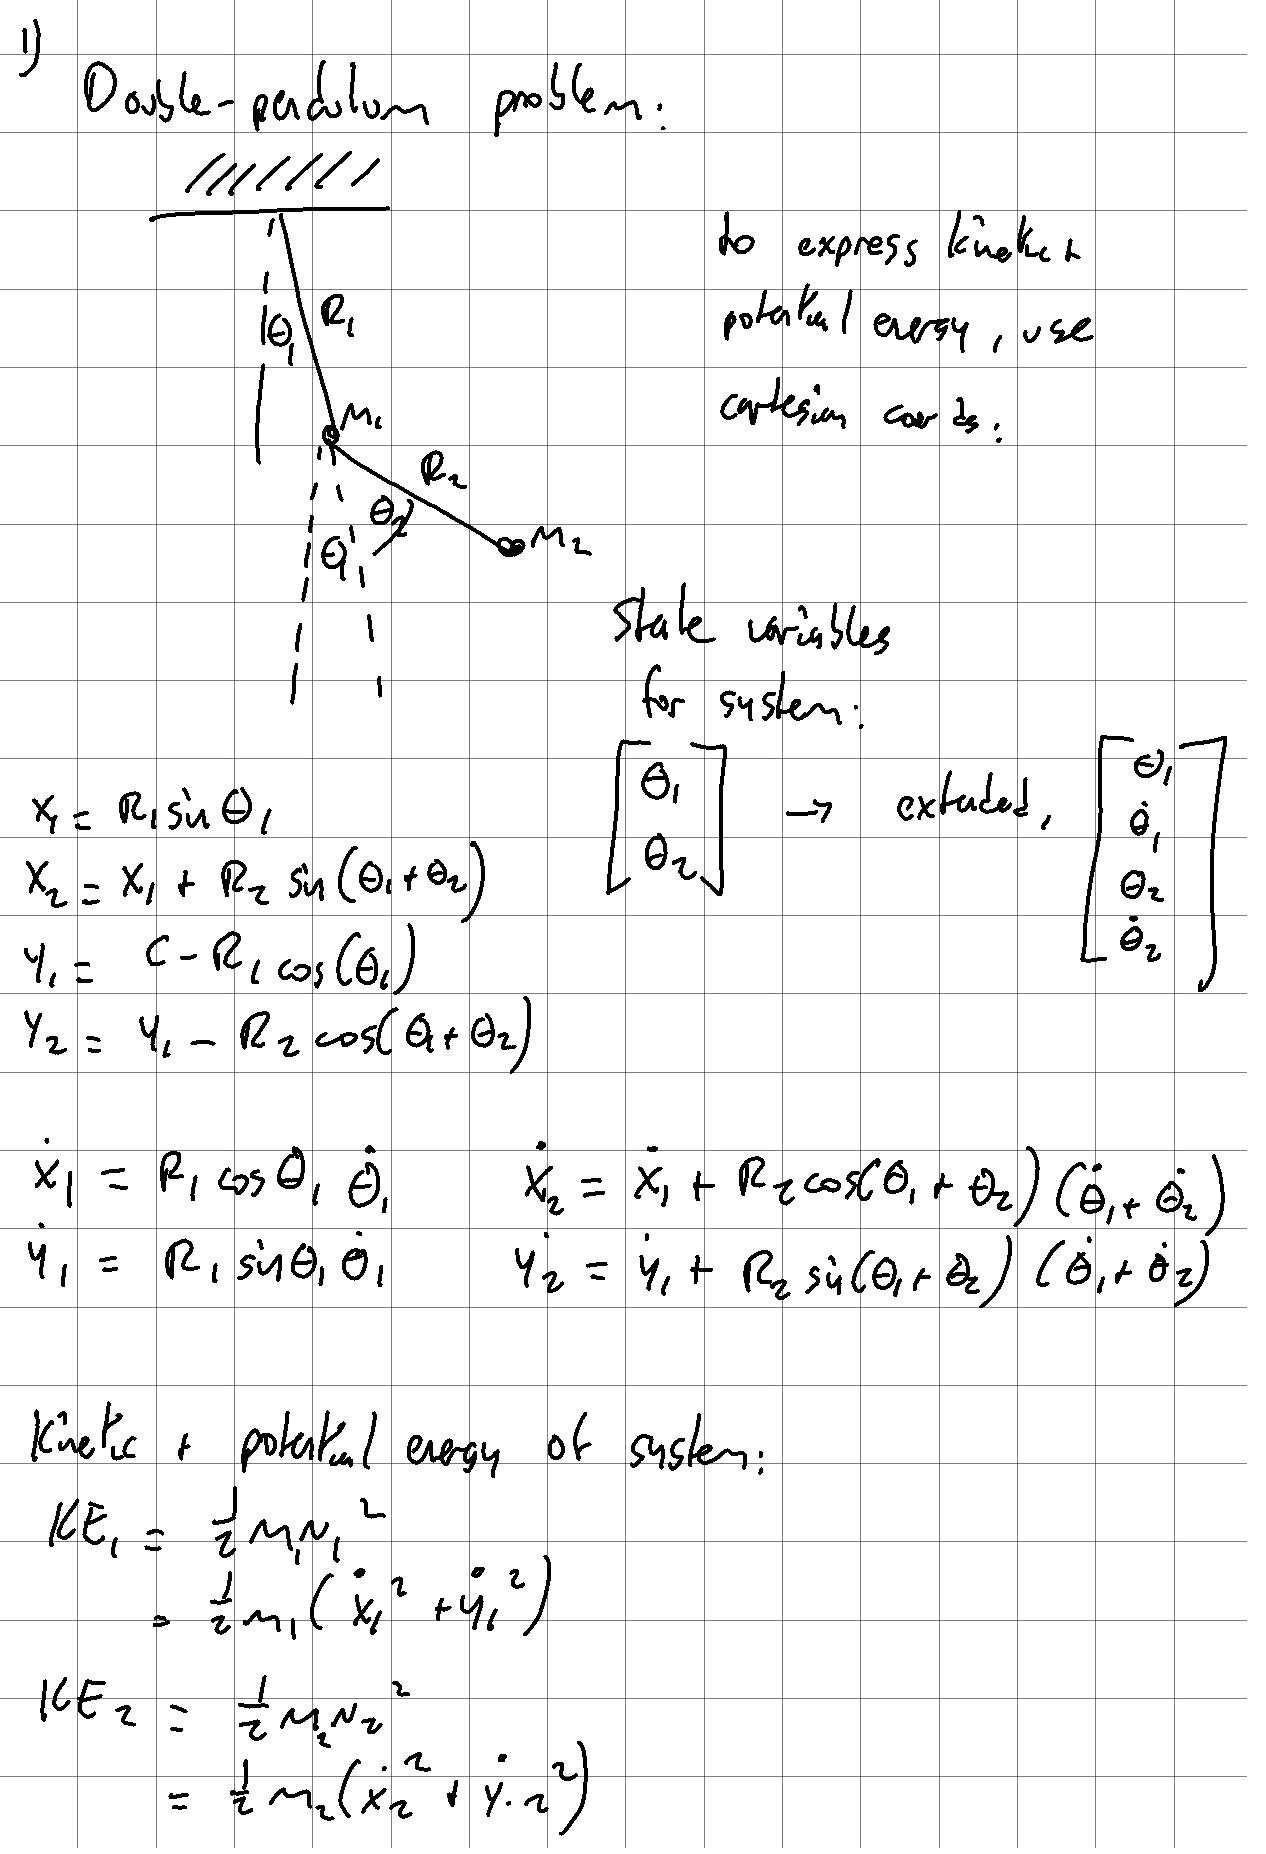 1)
Double-pendulum problem:
to express kinetic +
potential energy, use
cartesian coords:
θ₁ R₁
M₁
R₂
θ₂
θ₁ M₂
State variables
for system:
[θ₁ θ₂] → extended, [θ₁ θ̇₁ θ₂ θ̇₂]
x₁ = R₁ sin θ₁
x₂ = x₁ + R₂ sin(θ₁+θ₂)
y₁ = C - R₁ cos(θ₁)
y₂ = y₁ - R₂ cos(θ₁+θ₂)
ẋ₁ = R₁ cosθ₁ θ̇₁ ẋ₂ = ẋ₁ + R₂cos(θ₁+θ₂)(θ̇₁+θ̇₂)
ẏ₁ = R₁ sinθ₁ θ̇₁ ẏ₂ = ẏ₁ + R₂ sin(θ₁+θ₂)(θ̇₁+θ̇₂)
Kinetic + potential energy of system:
KE₁ = ½ m₁v₁²
= ½ m₁(ẋ₁² + ẏ₁²)
KE₂ = ½ m₂v₂²
= ½ m₂(ẋ₂² + ẏ₂²)